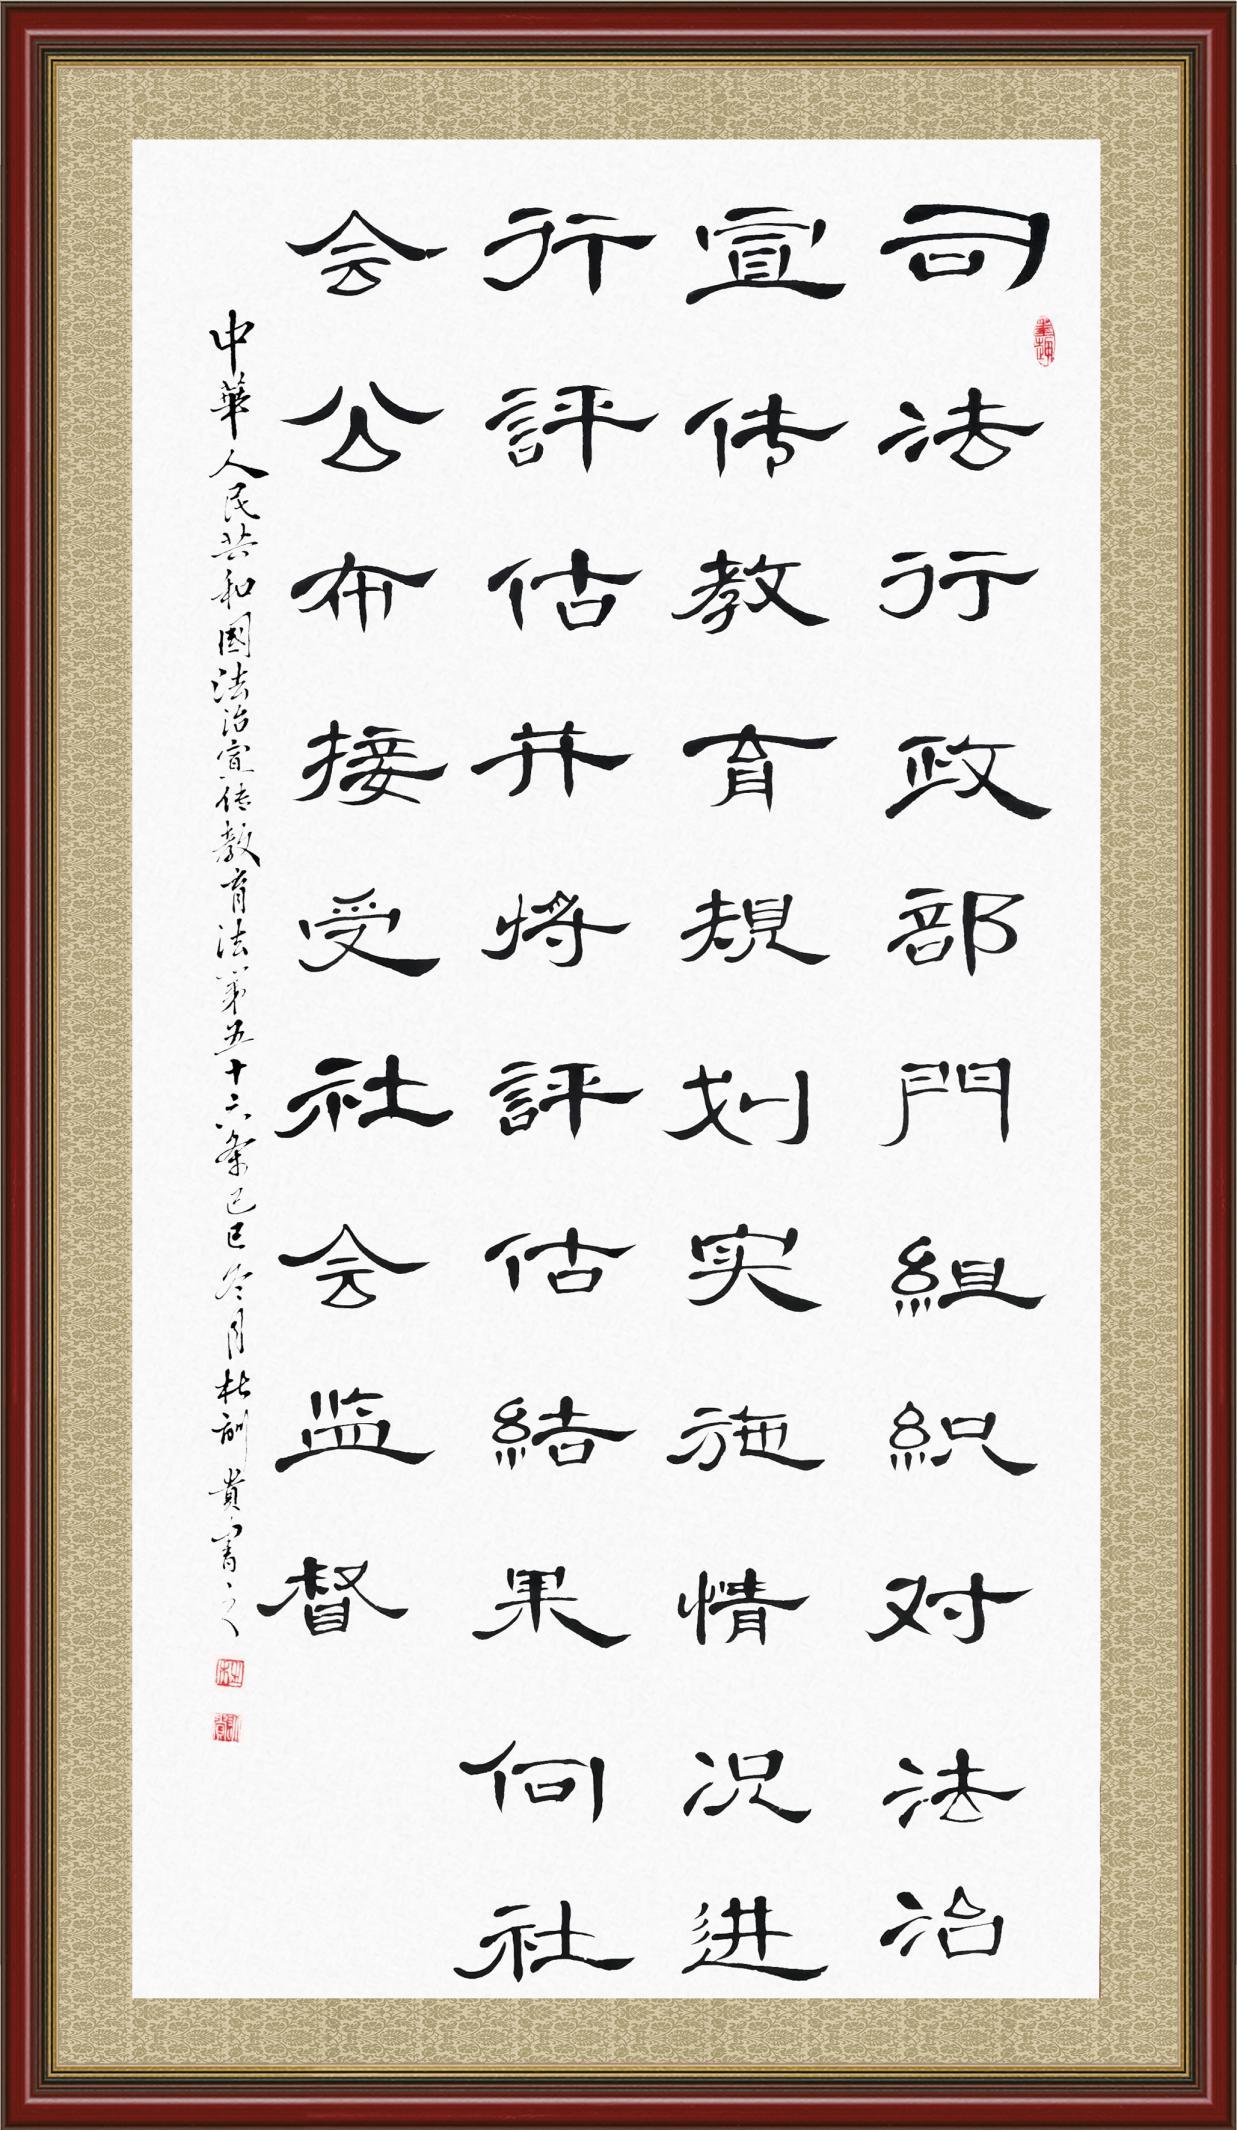 司法行政部門組织对法治
宣传教育規划实施情况进
行評估并将評估結果向社
会公布接受社会监督
中華人民共和國法治宣传教育法第五十六条乙巳冬月杜訓貴書之